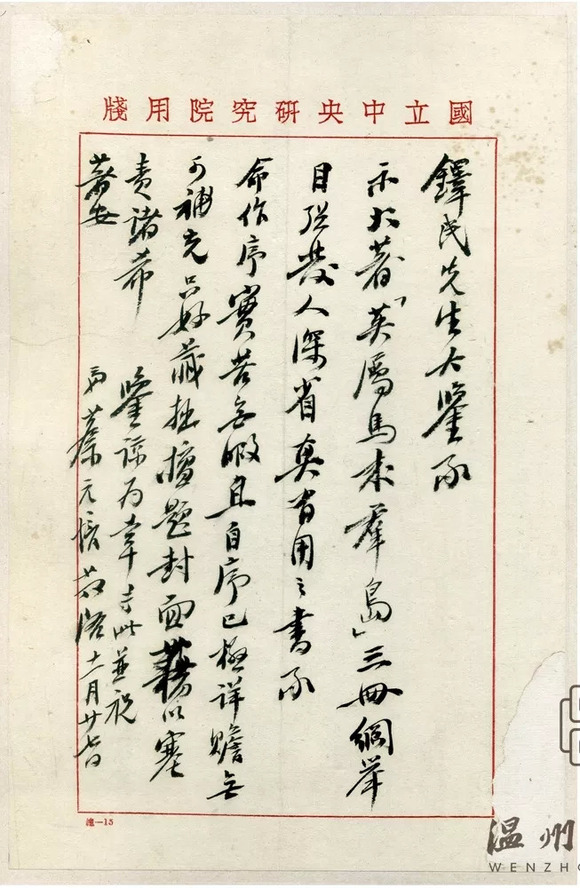 國立中央研究院用牋
鐸民先生大鑒承
示大著「英屬馬來羣島」三冊綱舉
目張發人深省真有用之書承
命作序實苦無暇且自序已極詳贍無
可補充只好藏拙擅題封面藉以塞
責諸希 鑒諒为幸耑此並祝
著安 弟蔡元培敬啓十一月廿七日
滬—15
温州
WENZHO